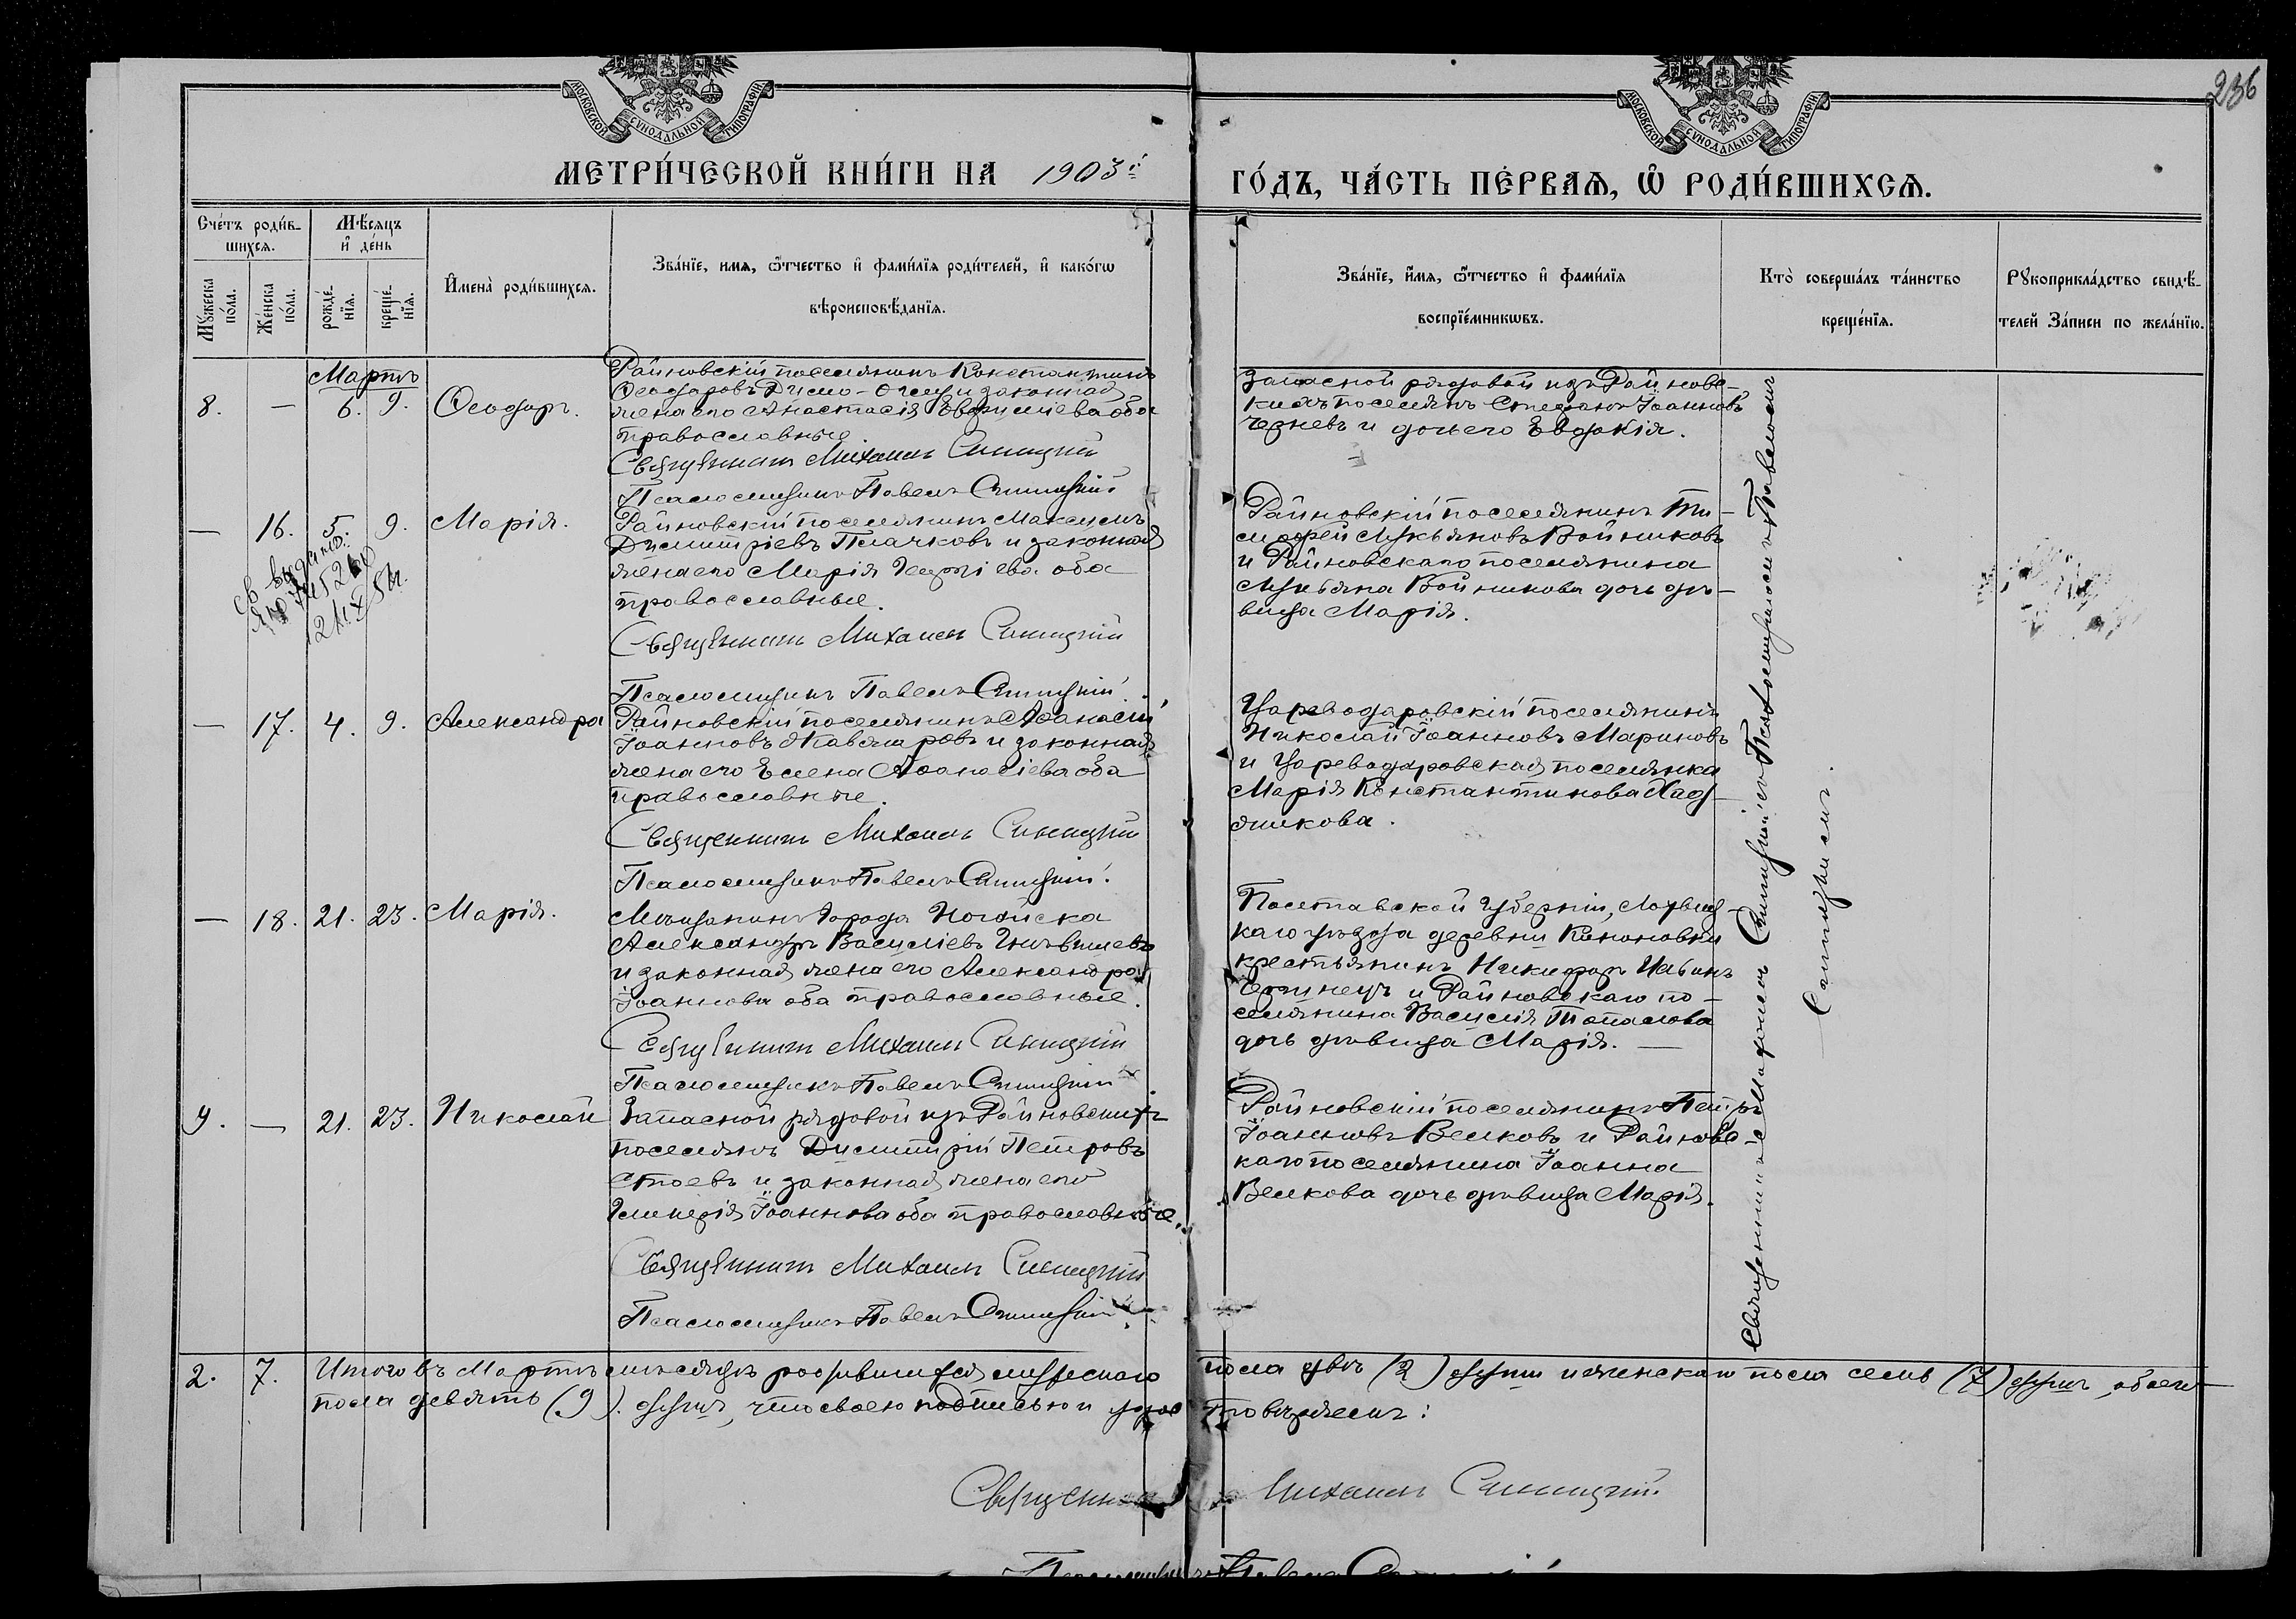 236
МОСКОВСКОЙ СѴНОДАЛЬНОЙ ТИПОГРАФІИ
МОСКОВСКОЙ СѴНОДАЛЬНОЙ ТИПОГРАФІИ
МЕТРИ́ЧЕСКОЙ КНИ́ГИ НА 1903й
ГО́ДЪ, ЧА́СТЬ ПЕ́РВАЯ, Ѡ РОДИ́ВШИХСЯ.
Сче́тъ роди́в-
шихся.
Мѣ́сяцъ
и де́нь
Мꙋ́жеска по́ла.
Же́нска по́ла.
рожде́-
нїя.
креще́-
нїя.
Имена̀ роди́вшихся.
Зва́нїе, имя, ѻ҆́тчество и фами́лїя роди́телей, и како́гѡ
вѣроисповѣ́данїя.
Зва́нїе, и́мя, ѻ҆́тчество и фами́лїя
воспрїе́мникѡвъ.
Кто̀ соверша́лъ та́инство
креще́нїя.
Рꙋкоприкла́дство свидѣ́-
телей За́писи по жела́нїю.
Мартъ
8. — 6. 9. Ѳеодоръ.
Райновскій поселянинъ Константинъ
Ѳеодоровъ Димо-Оглу и законная
жена его Анастасія Евфиміева оба
православные.
Священникъ Михаилъ Синицкій
Псаломщикъ Павелъ Синицкій
Запасной рядовой изъ Райновс-
кихъ поселянъ Стефанъ Іоанновъ
Черневъ и дочь его Евдокія.
— 16. 5. 9. Марія.
Райновскій поселянинъ Максимъ
Димитріевъ Плачковъ и законная
жена его Марія Георгіева оба
православные.
Священникъ Михаилъ Синицкій
Псаломщикъ Павелъ Синицкій
Райновскій поселянинъ Ти-
мофей Лукьяновъ Войниковъ
и Райновскаго поселянина
Лукьяна Войникова дочь дѣ-
вица Марія.
— 17. 4. 9. Александра
Райновскій поселянинъ Аѳанасій
Іоанновъ Кавалжровъ и законная
жена его Елена Аѳанасіева оба
православные.
Священникъ Михаилъ Синицкій
Псаломщикъ Павелъ Синицкій.
Цареводаровскій поселянинъ
Николай Іоанновъ Мариновъ
и Цареводаровская поселянка
Марія Константинова Хад-
жикова.
— 18. 21. 23. Марія.
Мѣщанинъ города Ногайска
Александръ Василіевъ
и законная жена его Александра
Іоаннова оба православные.
Священникъ Михаилъ Синицкій
Псаломщикъ Павелъ Синицкій
Полтавской губерніи, Лохвиц-
каго уѣзда деревни Кононовки
крестьянинъ Никифоръ
и Райновскаго по-
селянина Василія Топалова
дочь дѣвица Марія. —
9. — 21. 23. Николай
Запасной рядовой изъ Райновскихъ
поселянъ Димитрій Петровъ
Стоевъ и законная жена его
Гликерія Іоаннова оба православные.
Священникъ Михаилъ Синицкій
Псаломщикъ Павелъ Синицкій
Райновскій поселянинъ Петръ
Іоанновъ Велковъ и Райновс-
каго поселянина Іоанна
Велкова дочь дѣвица Марія.
Священникъ Михаилъ Синицкій съ Псаломщикомъ Павломъ
Синицкимъ.
2. 7. Итого въ Мартѣ мѣсяцѣ родившихся мужескаго пола двѣ (2) души и женскаго пола семь (7) душъ, обоего
пола девять (9) душъ, что своею подписью и удостовѣряемъ:
Священникъ Михаилъ Синицкій
Псаломщикъ Павелъ Синицкій